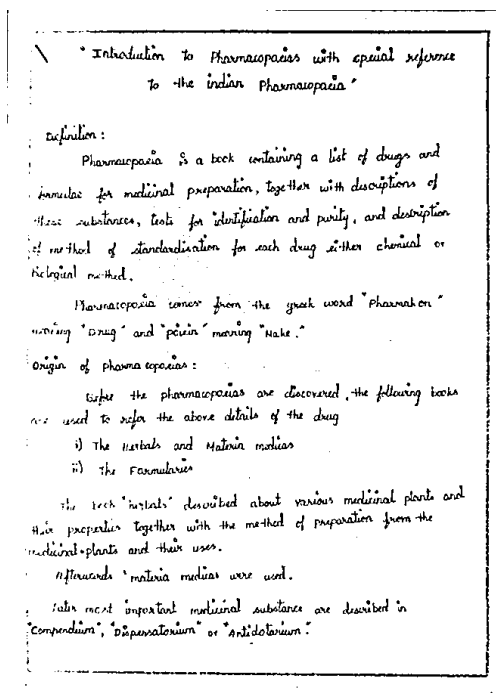 "Introduction to Pharmacopoeias with special reference
to the indian Pharmacopoeia"
Definition:
Pharmacopoeia is a book containing a list of drugs and
formulae for medicinal preparation, together with descriptions of
these substances, tests for identification and purity, and description
of method of standardisation for each drug either chemical or
biological method.
Pharmacopoeia comes from the greek word "Pharmakon"
meaning "Drug" and "poiein" meaning "Make."
Origin of pharmacopoeias:
Before the pharmacopoeias are discovered, the following books
are used to refer the above details of the drug
i) The Herbals and Materia medicas
ii) The Formularies
The book "herbals" described about various medicinal plants and
their properties together with the method of preparation from the
medicinal plants and their uses.
Afterwards "materia medicas were used.
Later most important medicinal substance are described in
"Compendium", "Dispensatorium" or "Antidotarium".